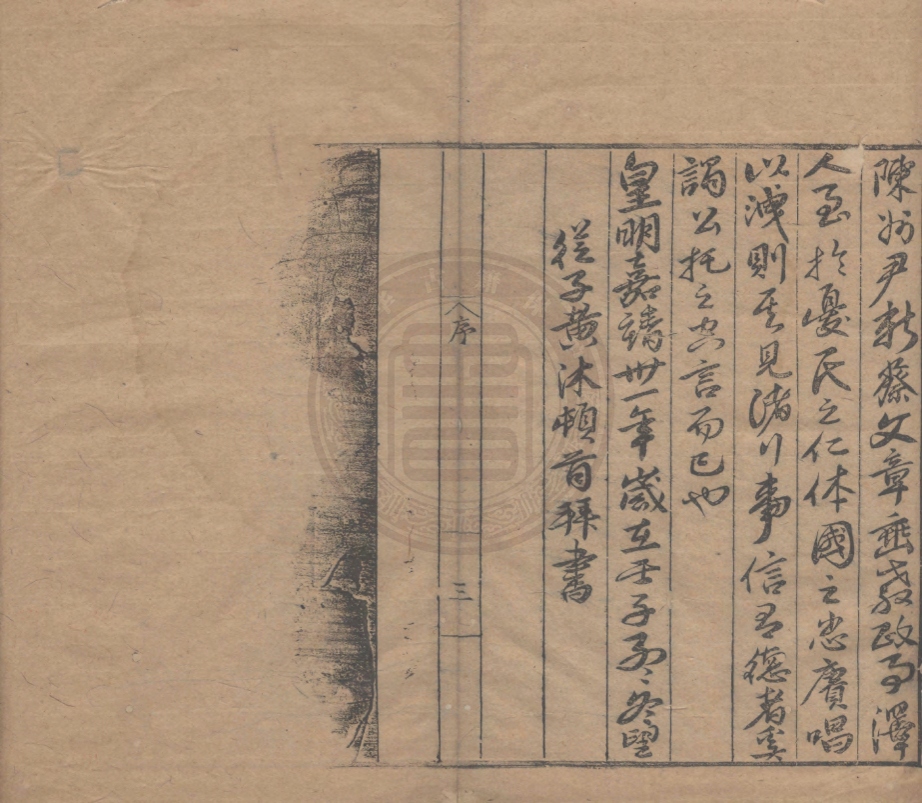 陳州尹新蔡文章垂教政事澤
人至於憂民之仁体國之忠賡唱
以洩則其見諸行事信有德者矣
謁公托之空言而已也
皇明嘉靖卅一年歲在壬子孟冬望
從子黄沐頓首拜書
序
三